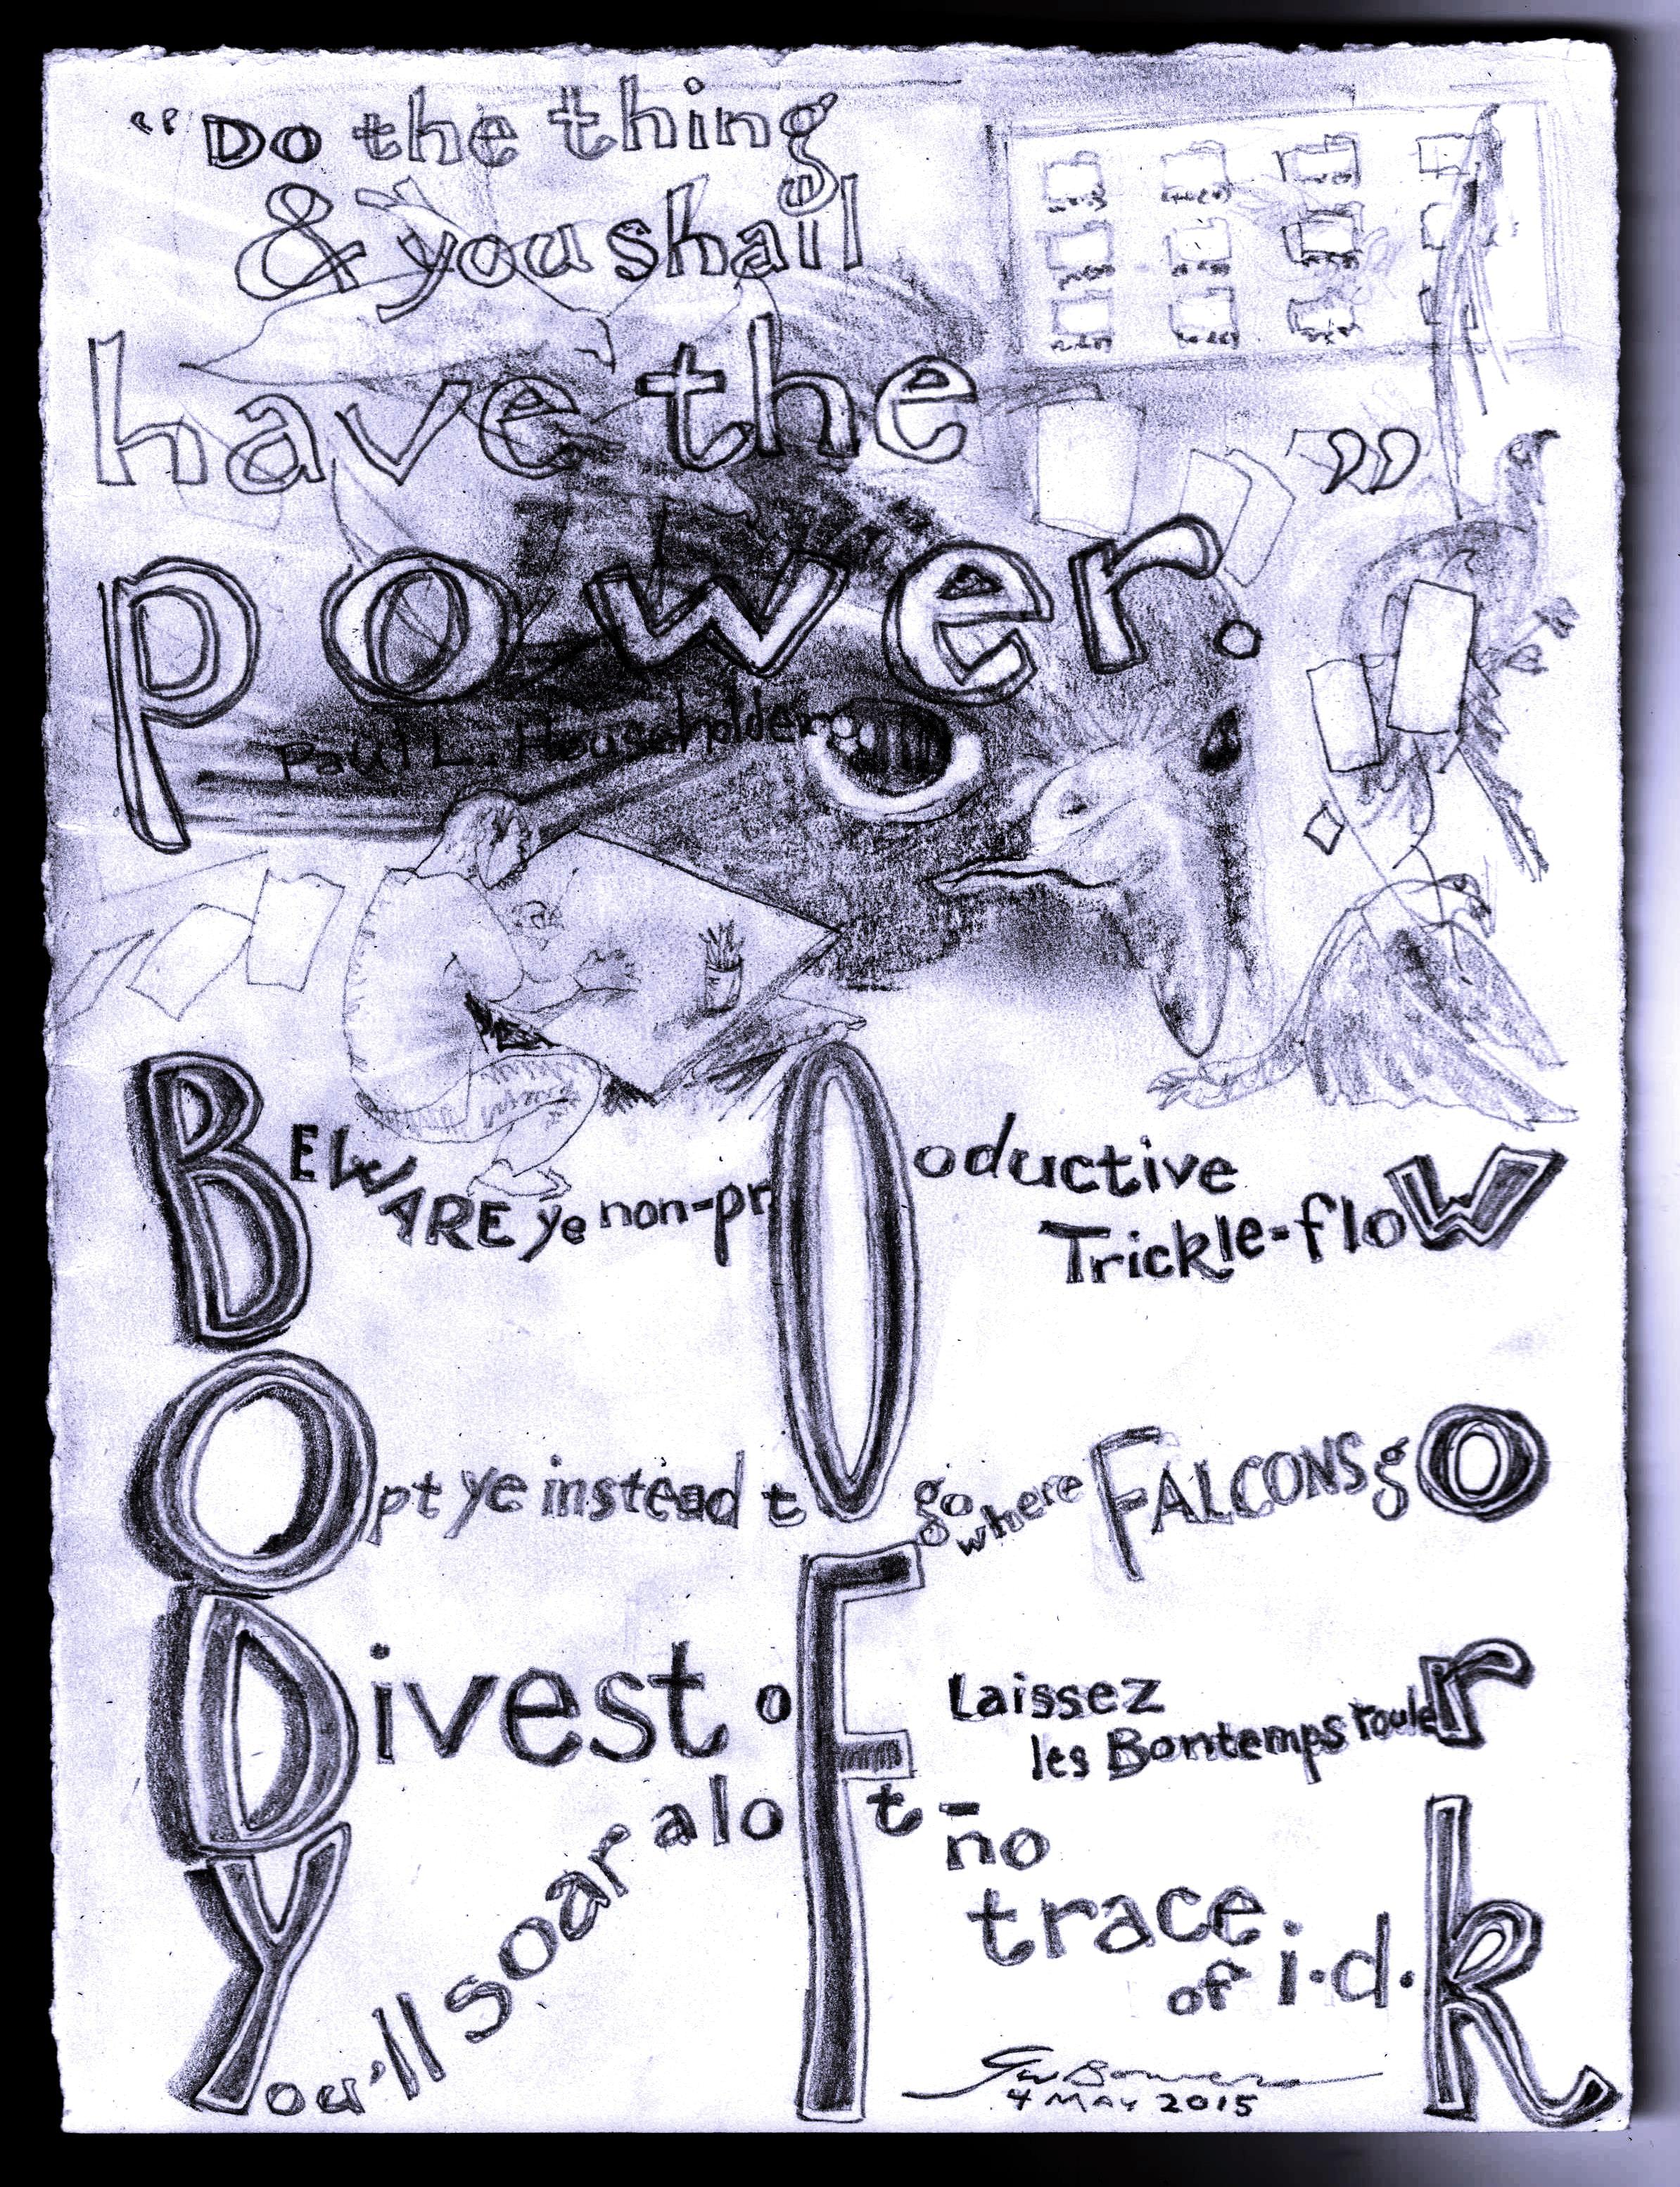 "Do the thing
& you shall
have the
power."
Paul L. Householder
BEWARE ye non-prOoductive
Trickle-flow
Opt ye instead tO go where FALCONS go
Divest oF Laissez
les Bontemps rouler
You'll soar aloFt - no
trace
of i.d.k
4 MAY 2015